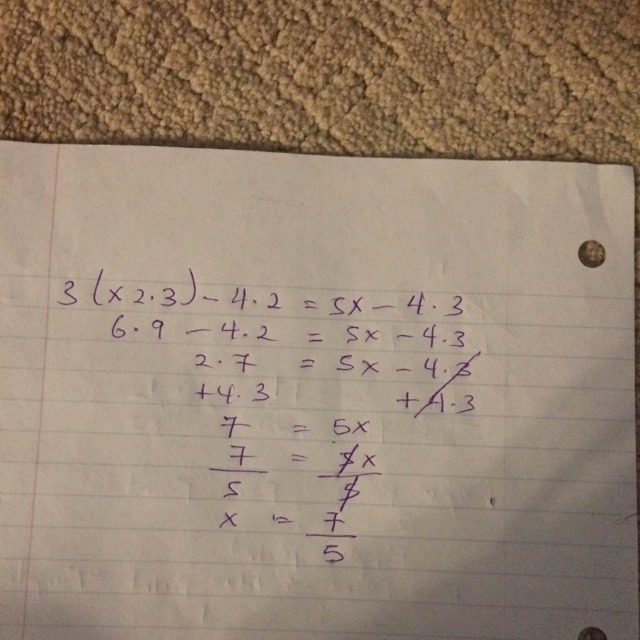 3(x 2.3) - 4.2 = 5x - 4.3
6.9 - 4.2 = 5x - 4.3
2.7 = 5x - 4.3
+4.3 +4.3
7 = 5x
7/5 = 5x/5
x = 7/5